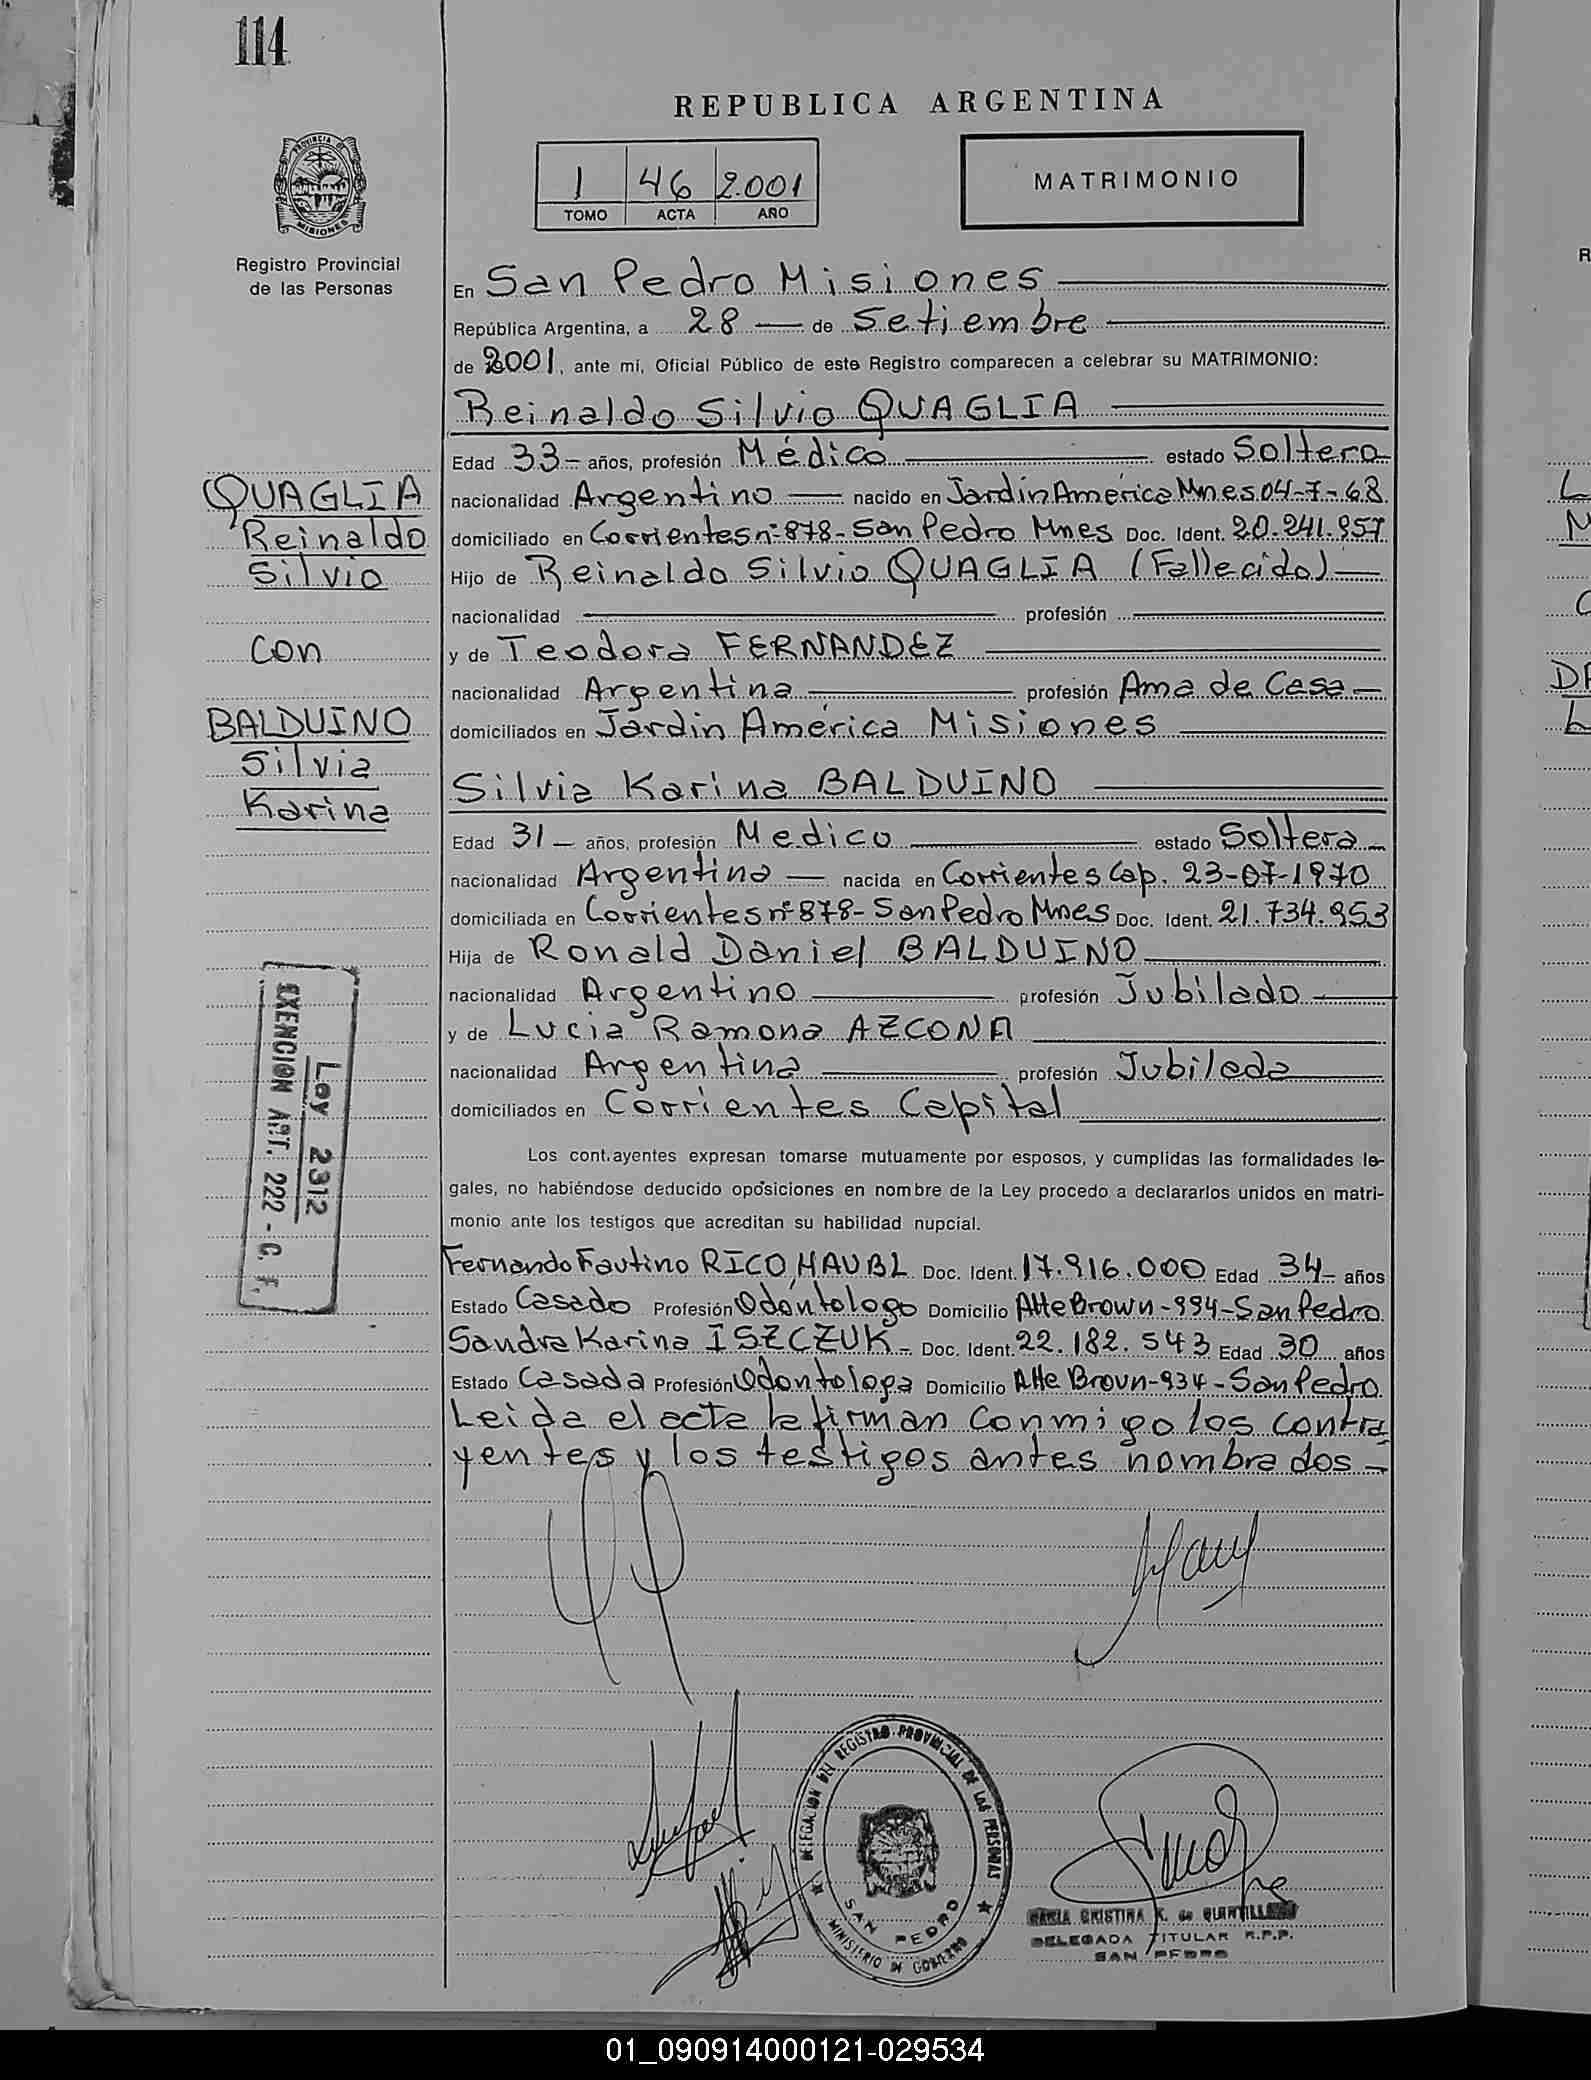 114
REPUBLICA ARGENTINA
PROVINCIA DE
MISIONES
1 46 2.001
TOMO ACTA AÑO
MATRIMONIO
Registro Provincial
de las Personas
En San Pedro Misiones
República Argentina, a 28 — de Setiembre
de 2001, ante mí, Oficial Público de este Registro comparecen a celebrar su MATRIMONIO:
Reinaldo Silvio QUAGLIA
Edad 33- años, profesión Médico estado Soltero
nacionalidad Argentino — nacido en Jardin América Mnes 04-7-68
domiciliado en Corrientes nº 878- San Pedro Mnes Doc. Ident. 20.241.957
Hijo de Reinaldo Silvio QUAGLIA (Fallecido)
nacionalidad profesión
y de Teodora FERNANDEZ
nacionalidad Argentina profesión Ama de Casa
domiciliados en Jardin América Misiones
QUAGLIA
Reinaldo
Silvio
con
BALDUINO
Silvia
Karina
Silvia Karina BALDUINO
Edad 31 — años, profesión Medico estado Soltera
nacionalidad Argentina — nacida en Corrientes Cap. 23-07-1970
domiciliada en Corrientes nº 878- San Pedro Mnes Doc. Ident. 21.734.953
Hija de Ronald Daniel BALDUINO
nacionalidad Argentino profesión Jubilado
y de Lucia Ramona AZCONA
nacionalidad Argentina profesión Jubilada
domiciliados en Corrientes Capital
Ley 2312
EXENCION ART. 222 - C. F.
Los cont.ayentes expresan tomarse mutuamente por esposos, y cumplidas las formalidades le-
gales, no habiéndose deducido oposiciones en nombre de la Ley procedo a declararlos unidos en matri-
monio ante los testigos que acreditan su habilidad nupcial.
Fernando Fautino RICO HAUBL Doc. Ident. 17.916.000 Edad 34- años
Estado Casado Profesión Odóntologo Domicilio Alte Brown-994-San Pedro
Sandra Karina ISZCZUK- Doc. Ident. 22.182.543 Edad 30 años
Estado Casada Profesión Odontologa Domicilio Alte Brown-934-San Pedro
Leida el acta la firman conmigo los contra
yentes y los testigos antes nombrados-
DELEGACION DEL REGISTRO PROVINCIAL DE LAS PERSONAS
SAN PEDRO
MINISTERIO DE GOBIERNO
MARIA CRISTINA K. de QUINTILLAN
DELEGADA TITULAR R.P.P.
SAN PEDRO
01_090914000121-029534